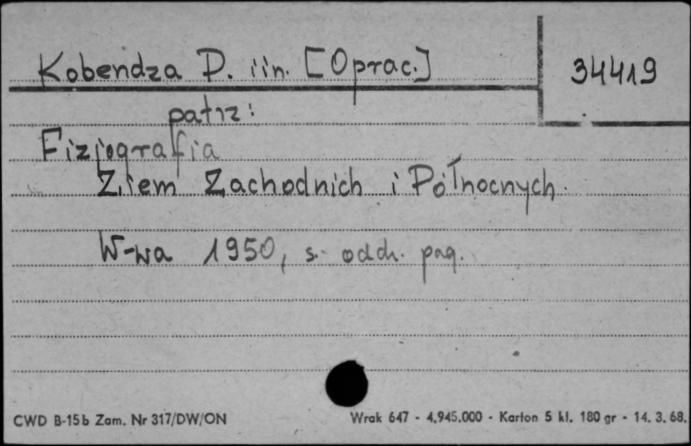 Kobendza D. i in. [Oprac.]
34419
patrz:
Fizjografia
Ziem Zachodnich i Północnych.
W-wa 1950, s. oddz. pag.
CWD B-15b Zam. Nr 317/DW/ON
Wrak 647 - 4,945.000 - Karton 5 kl. 180 gr - 14. 3. 68.